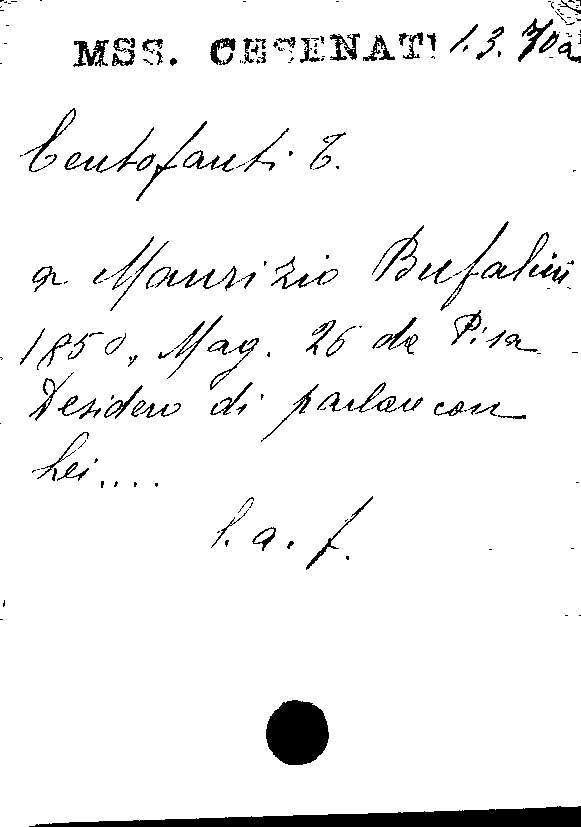 MSS. CESENATI 1.3.70a
Centofanti T.
a Maurizio Bufalini
1850, Mag. 26 da Pisa
Desidero di parlare con
Lei....
l. a. f.